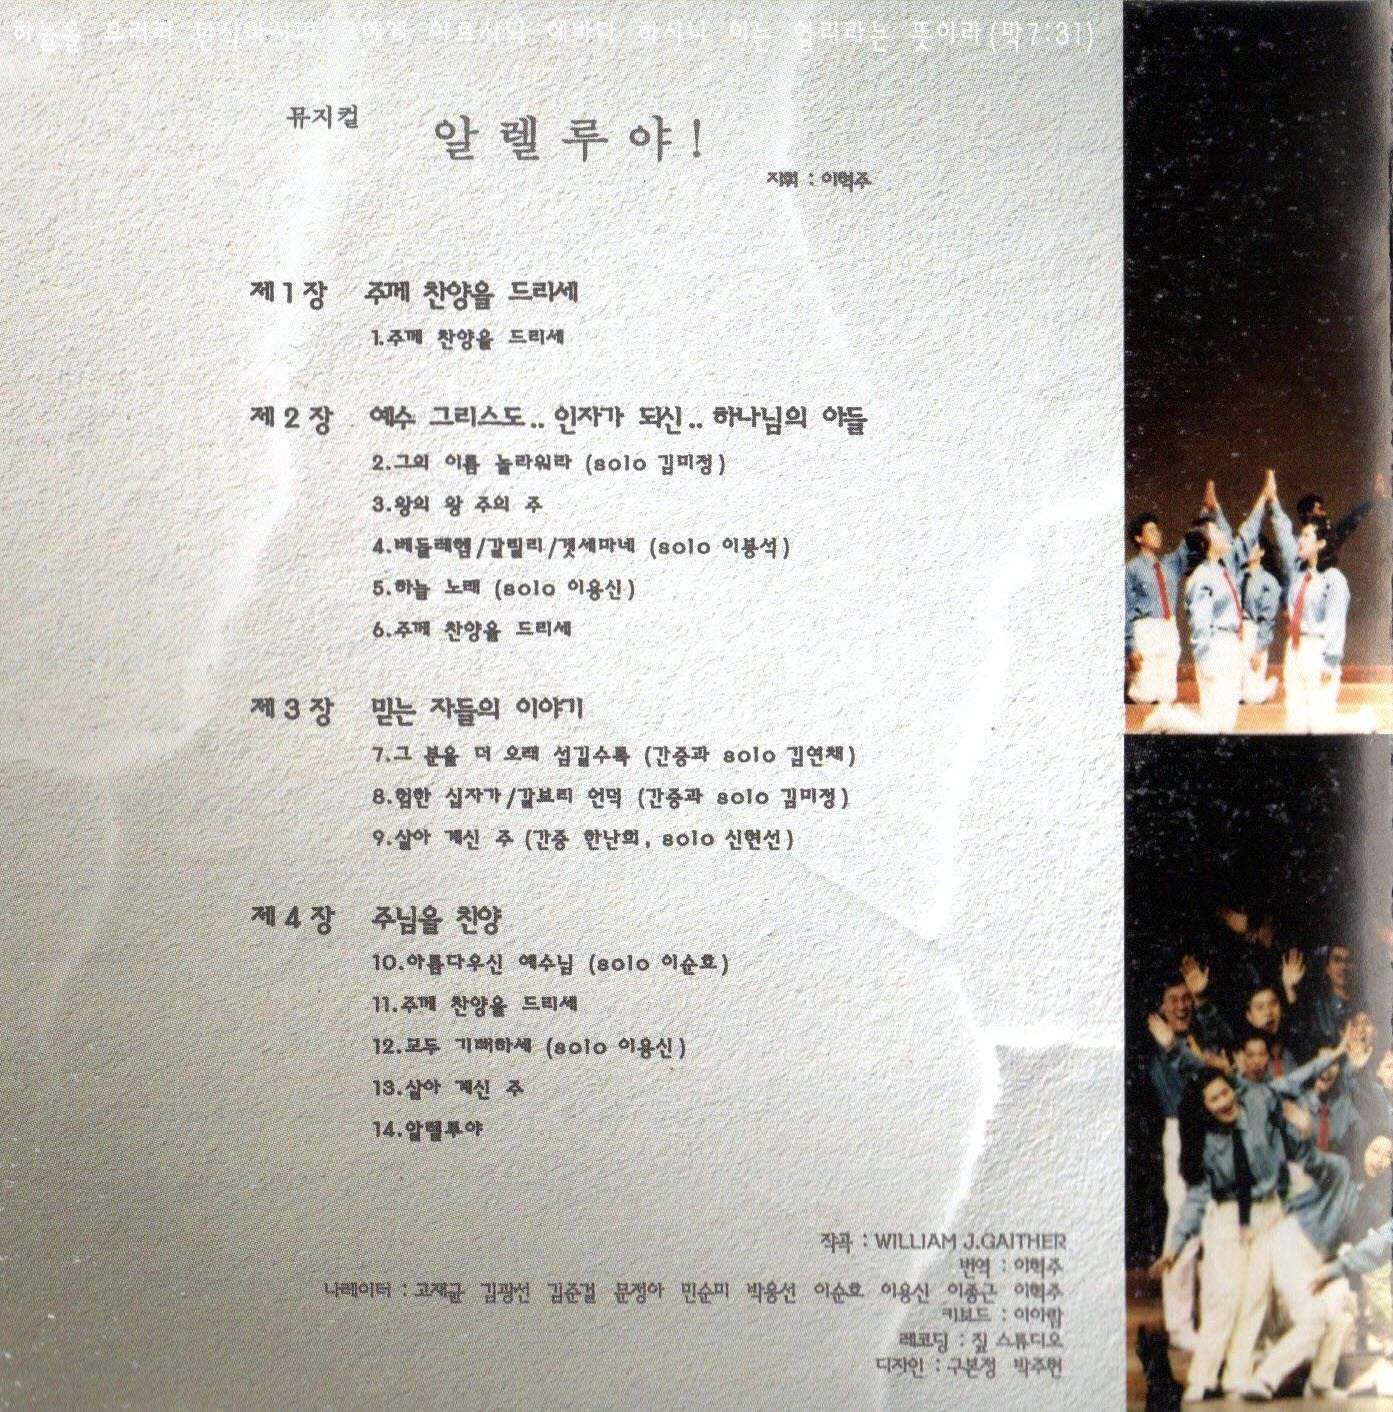 하늘을 우러러 탄식하시며 그에게 이르시되 에바다 하시니 이는 열리라는 뜻이라(막7:31)
뮤지컬
알렐루야!
지휘 : 이혁주
제1장 주께 찬양을 드리세
1.주께 찬양을 드리세
제2장 예수 그리스도.. 인자가 되신.. 하나님의 아들
2.그의 이름 놀라워라 (solo 김미정)
3.왕의 왕 주의 주
4.베들레헴/갈릴리/겟세마네 (solo 이봉석)
5.하늘 노래 (solo 이용신)
6.주께 찬양을 드리세
제3장 믿는 자들의 이야기
7.그 분을 더 오래 섬길수록 (간증과 solo 김연채)
8.험한 십자가/갈보리 언덕 (간증과 solo 김미정)
9.살아 계신 주 (간증 한난희, solo 신현선)
제4장 주님을 찬양
10.아름다우신 예수님 (solo 이순호)
11.주께 찬양을 드리세
12.모두 기뻐하세 (solo 이용신)
13.살아 계신 주
14.알렐루야
작곡 : WILLIAM J.GAITHER
번역 : 이혁주
나레이터 : 고재균 김광선 김준걸 문정아 민순미 박용선 이순호 이용신 이종근 이혁주
키보드 : 이아람
레코딩 : 짚 스튜디오
디자인 : 구본정 박주현